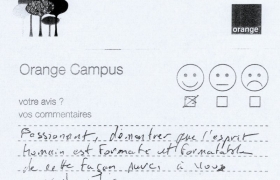 orange
Orange Campus
votre avis ?
vos commentaires
Passionant, démontrer que l'esprit
humain est formaté et formatable
de cette façon, merci à vous